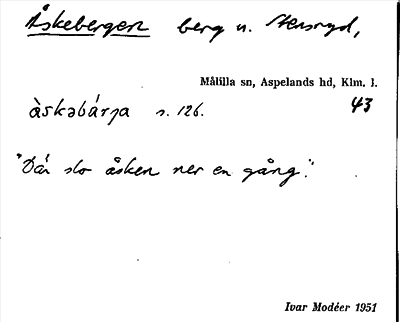 Åskebergen berg u. Stensryd,
Målilla sn, Aspelands hd, Klm. l.
àskəbárja s. 126. 43
"Där slo åsken ner en gång".
Ivar Modéer 1951